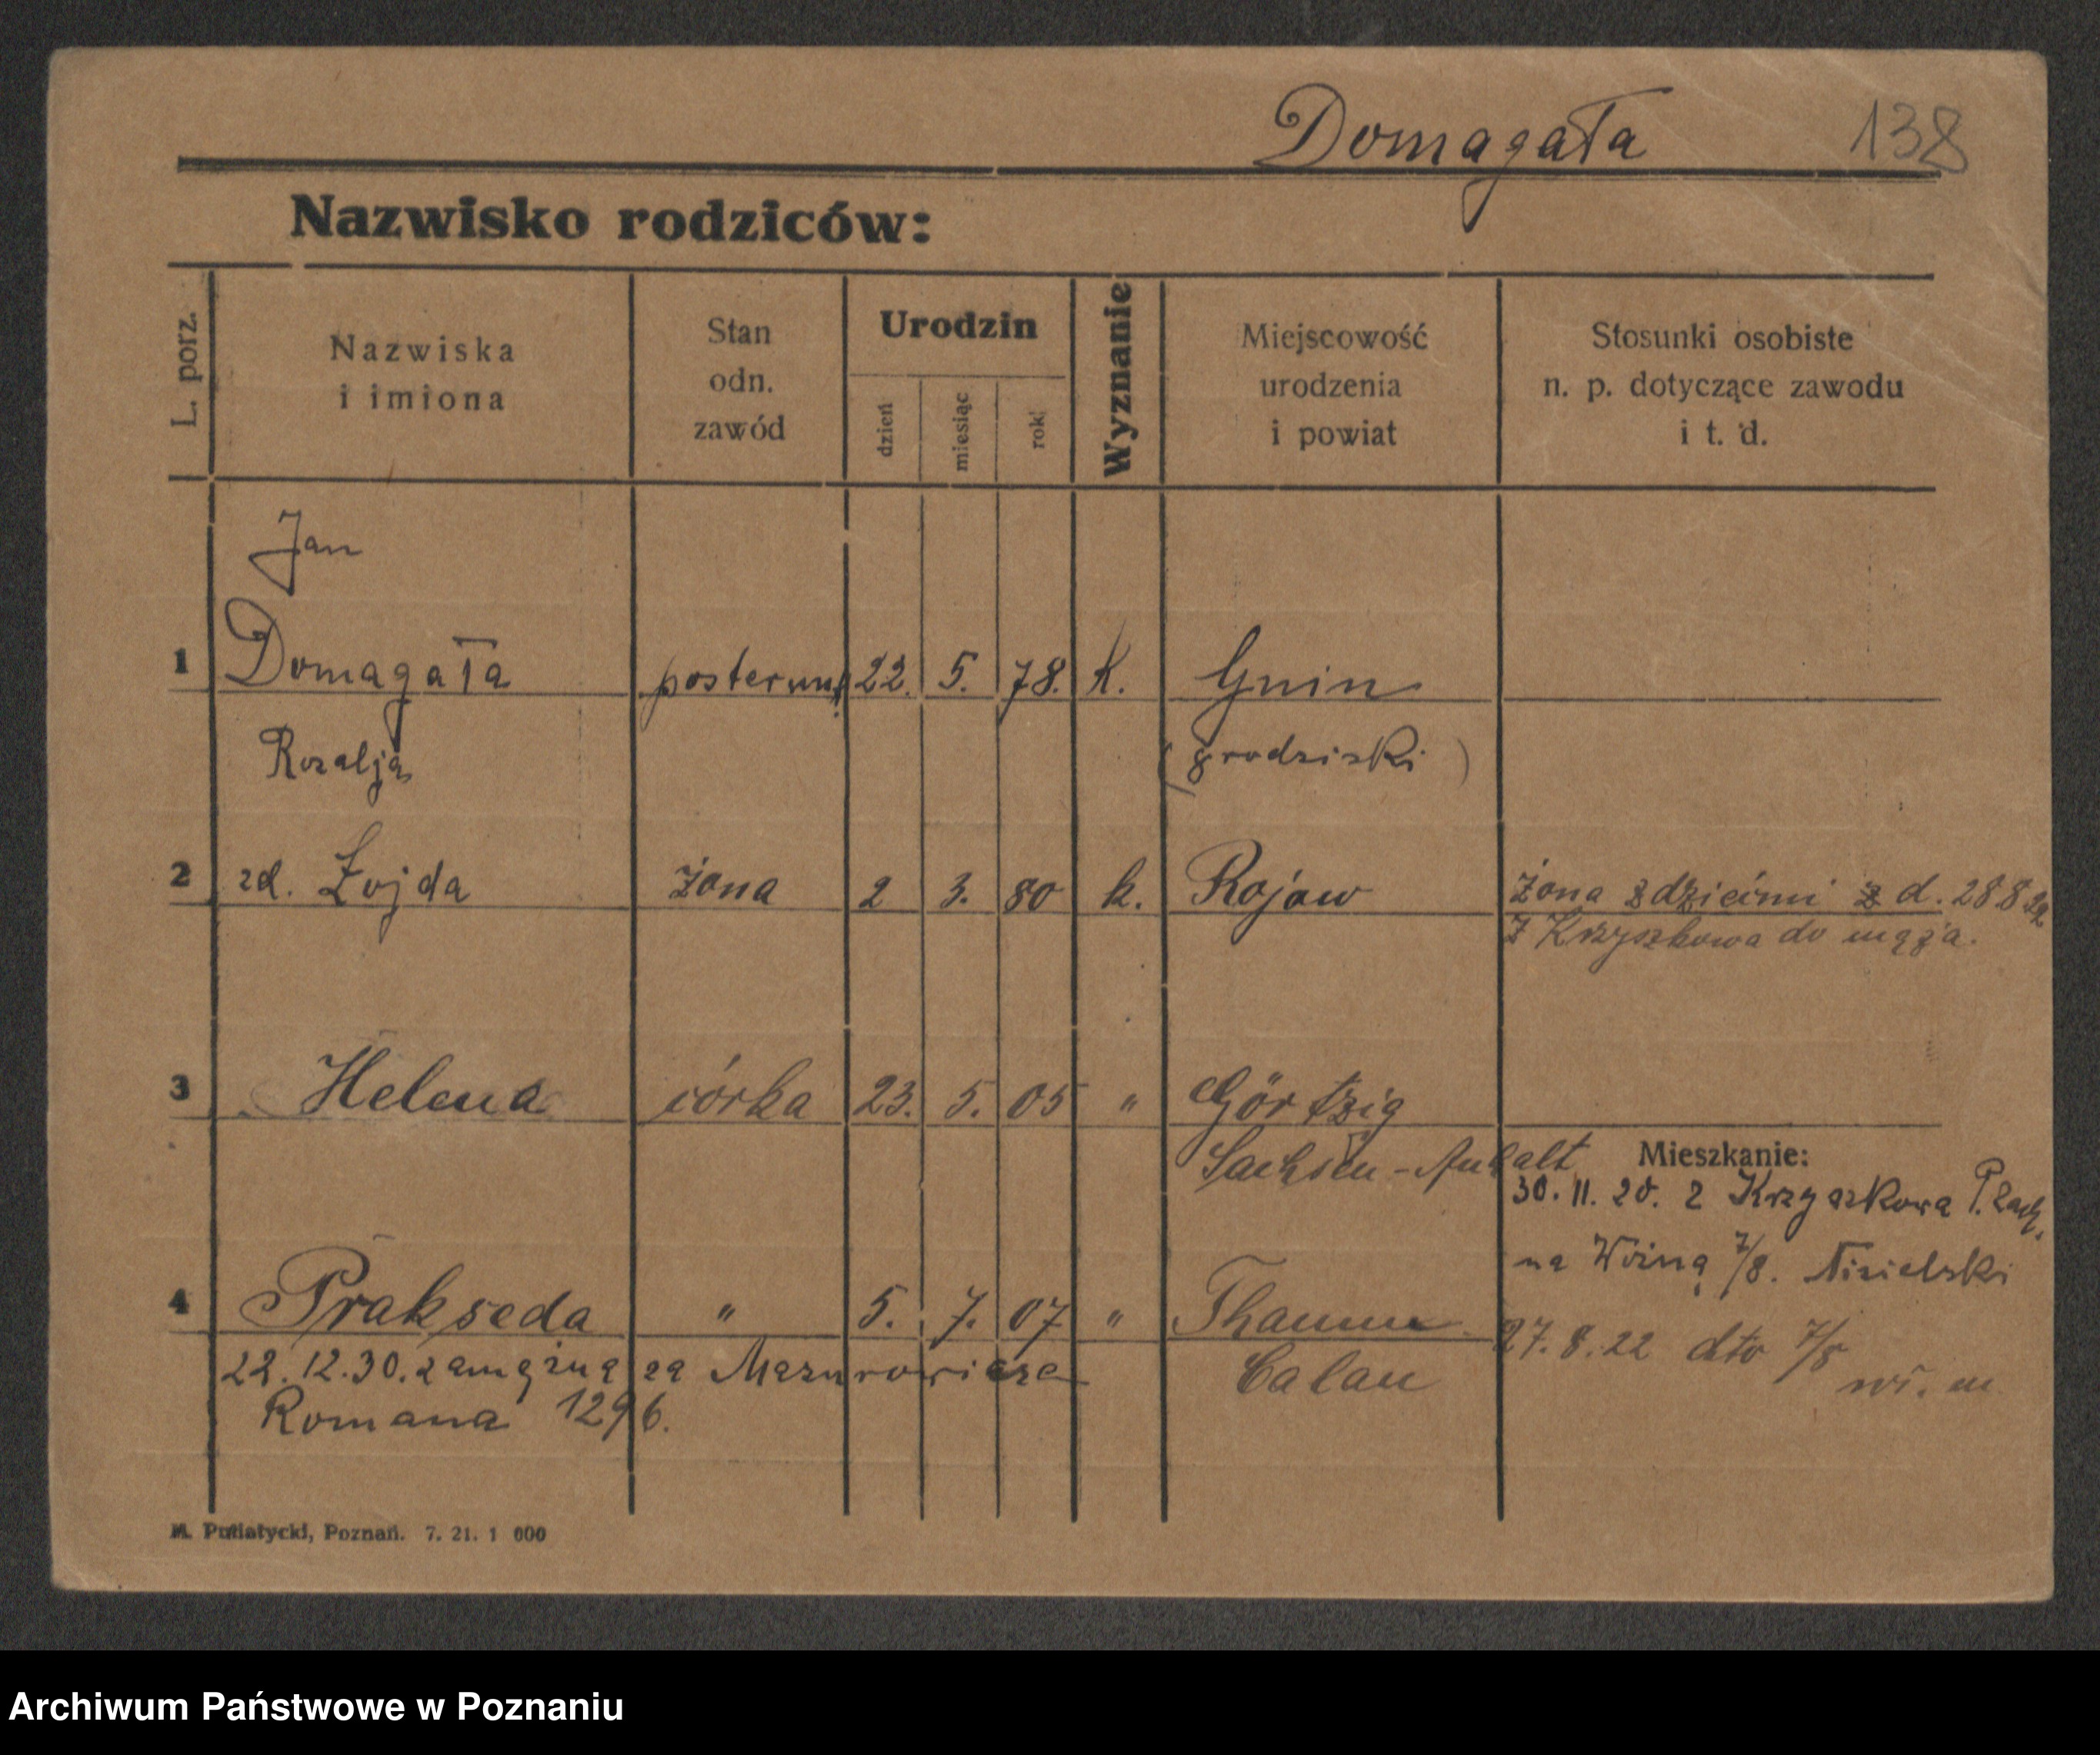 Domagała 138
Nazwisko rodziców:
L. porz.
Nazwiska
i imiona
Stan
odn.
zawód
Urodzin
dzień
miesiąc
rok
Wyznanie
Miejscowość
urodzenia
i powiat
Stosunki osobiste
n. p. dotyczące zawodu
i t. d.
Jan
1 Domagała posterunk 22. 5. 78. k. Gnin
Rozalja (grodziski)
2 zd. Łojda żona 2 3. 80 k. Rojow żona z dziećmi d. 28 8
z Krzyszkowa do męża.
3 Helena córka 23. 5. 05 " Görtzig
Sachsen-Anhalt
Mieszkanie:
30. 11. 20. z Krzyszkowa
na 7/8. Nisielski
4 Prakseda " 5. 7. 07 " Thamm
27. 8. 22 dto 7/8
22. 12. 30. zamężna za Mazurowicza Calau
Romana 1296.
M. Putiatycki, Poznań. 7. 21. 1 000
Archiwum Państwowe w Poznaniu